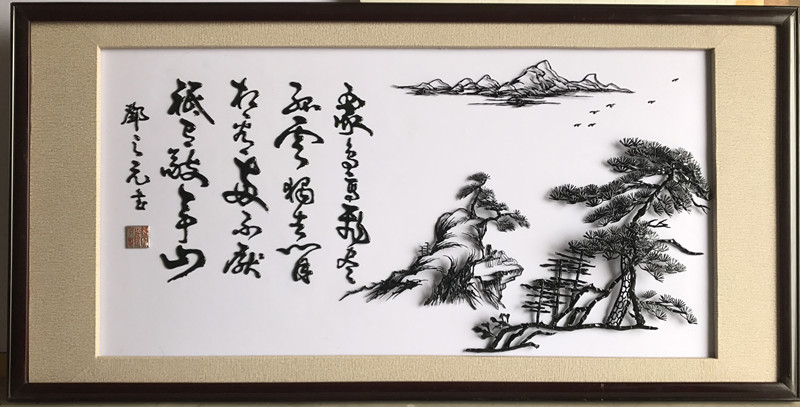 众鸟高飞尽
孤云独去闲
相看两不厌
祗有敬亭山
邓之元书